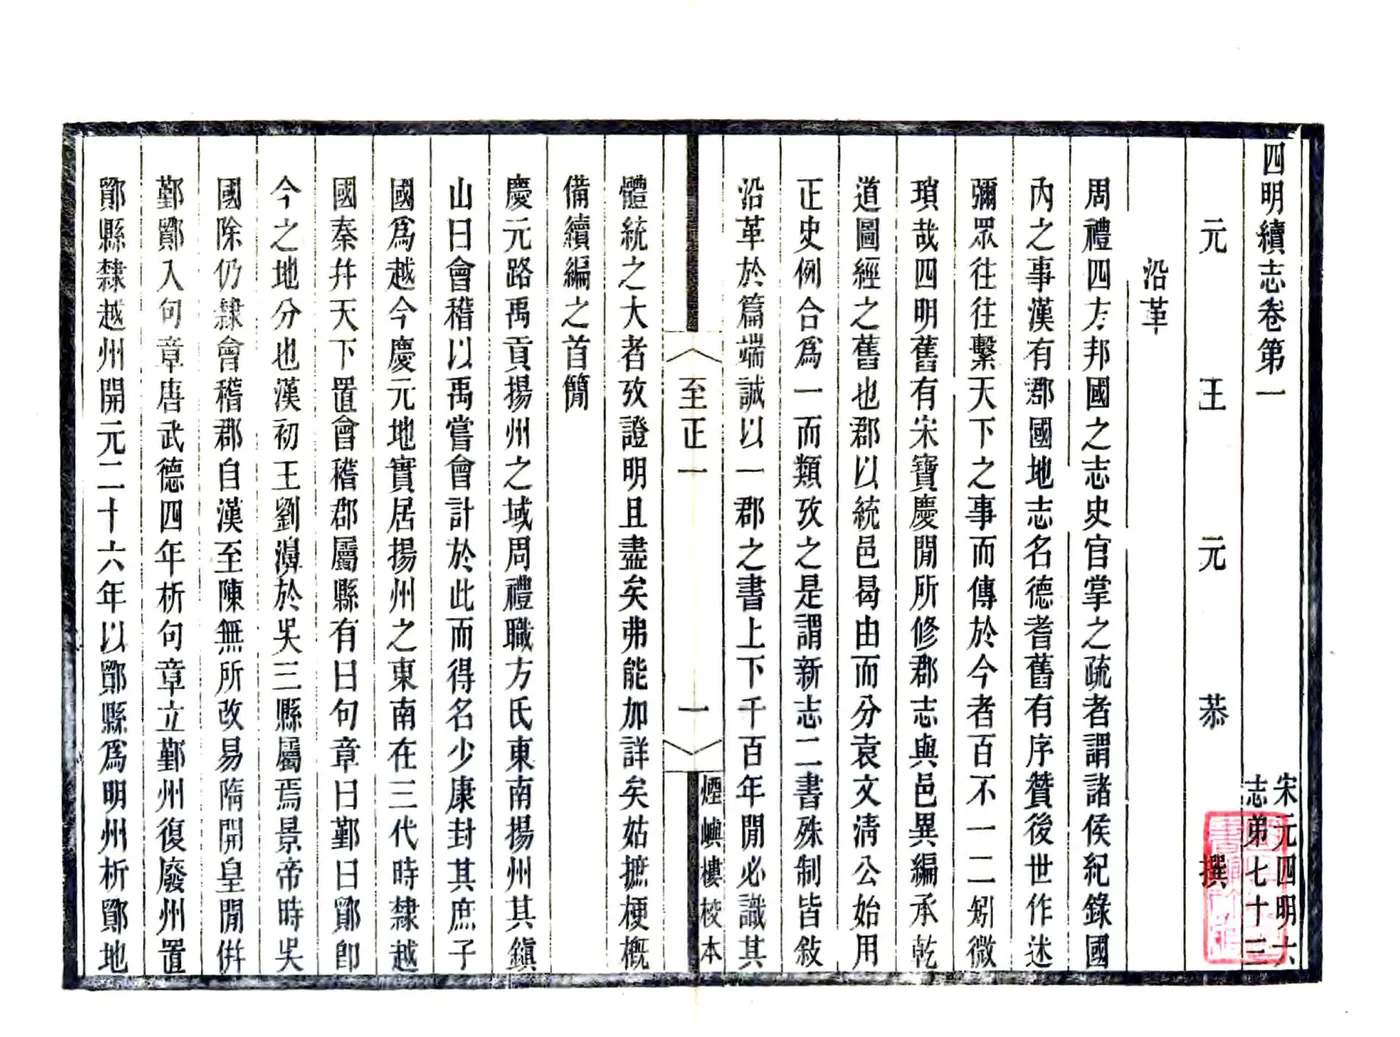 四明續志卷第一
宋元四明六
志弟七十三
元王元恭撰
沿革
周禮四方邦國之志史官掌之疏者謂諸侯紀錄國
內之事漢有郡國地志名德耆舊有序贊後世作述
彌眾往往繫天下之事而傳於今者百不一二矧微
瑣哉四明舊有宋寶慶閒所修郡志與邑異編承乾
道圖經之舊也郡以統邑曷由而分袁文淸公始用
正史例合爲一而類攷之是謂新志二書殊制皆敍
沿革於篇端誠以一郡之書上下千百年閒必識其
至正一
一
煙嶼樓校本
體統之大者攷證明且盡矣弗能加詳矣姑摭梗槪
備續編之首簡
慶元路禹貢揚州之域周禮職方氏東南揚州其鎭
山曰會稽以禹嘗會計於此而得名少康封其庶子
國爲越今慶元地實居揚州之東南在三代時隸越
國秦幷天下置會稽郡屬縣有曰句章曰鄞曰鄮卽
今之地分也漢初王劉濞於吳三縣屬焉景帝時吳
國除仍隸會稽郡自漢至陳無所改易隋開皇閒倂
鄞鄮入句章唐武德四年析句章立鄞州復廢州置
鄮縣隸越州開元二十六年以鄮縣爲明州析鄮地